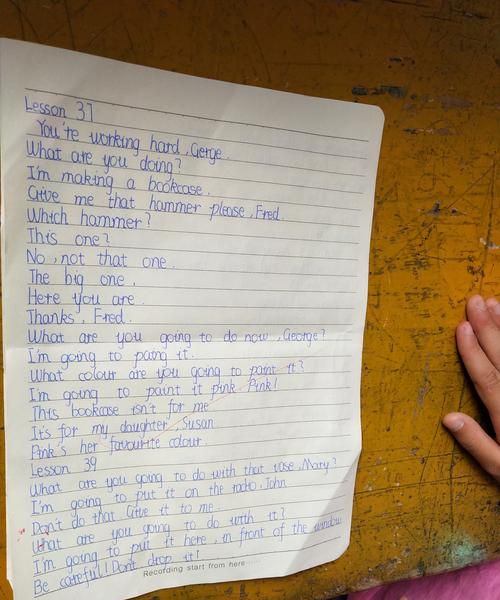 Lesson 37
You're working hard, Gerge.
What are you doing?
I'm making a bookcase.
Give me that hammer please, Fred.
Which hammer?
This one?
No, not that one.
The big one.
Here you are.
Thanks, Fred.
What are you going to do now, George?
I'm going to pang it.
What colour are you going to paint it?
I'm going to paint it pink Pink!
This bookcase isn't for me
It's for my daughter, Susan
Pink's her favourite colour.
Lesson 39
What are you going to do with that vase, Mary?
I'm going to put it on the radio, John
Don't do that Give it to me.
What are you going to do with it?
I'm going to put it here, in front of the window
Be careful! Don't drop it!
Recording start from here......